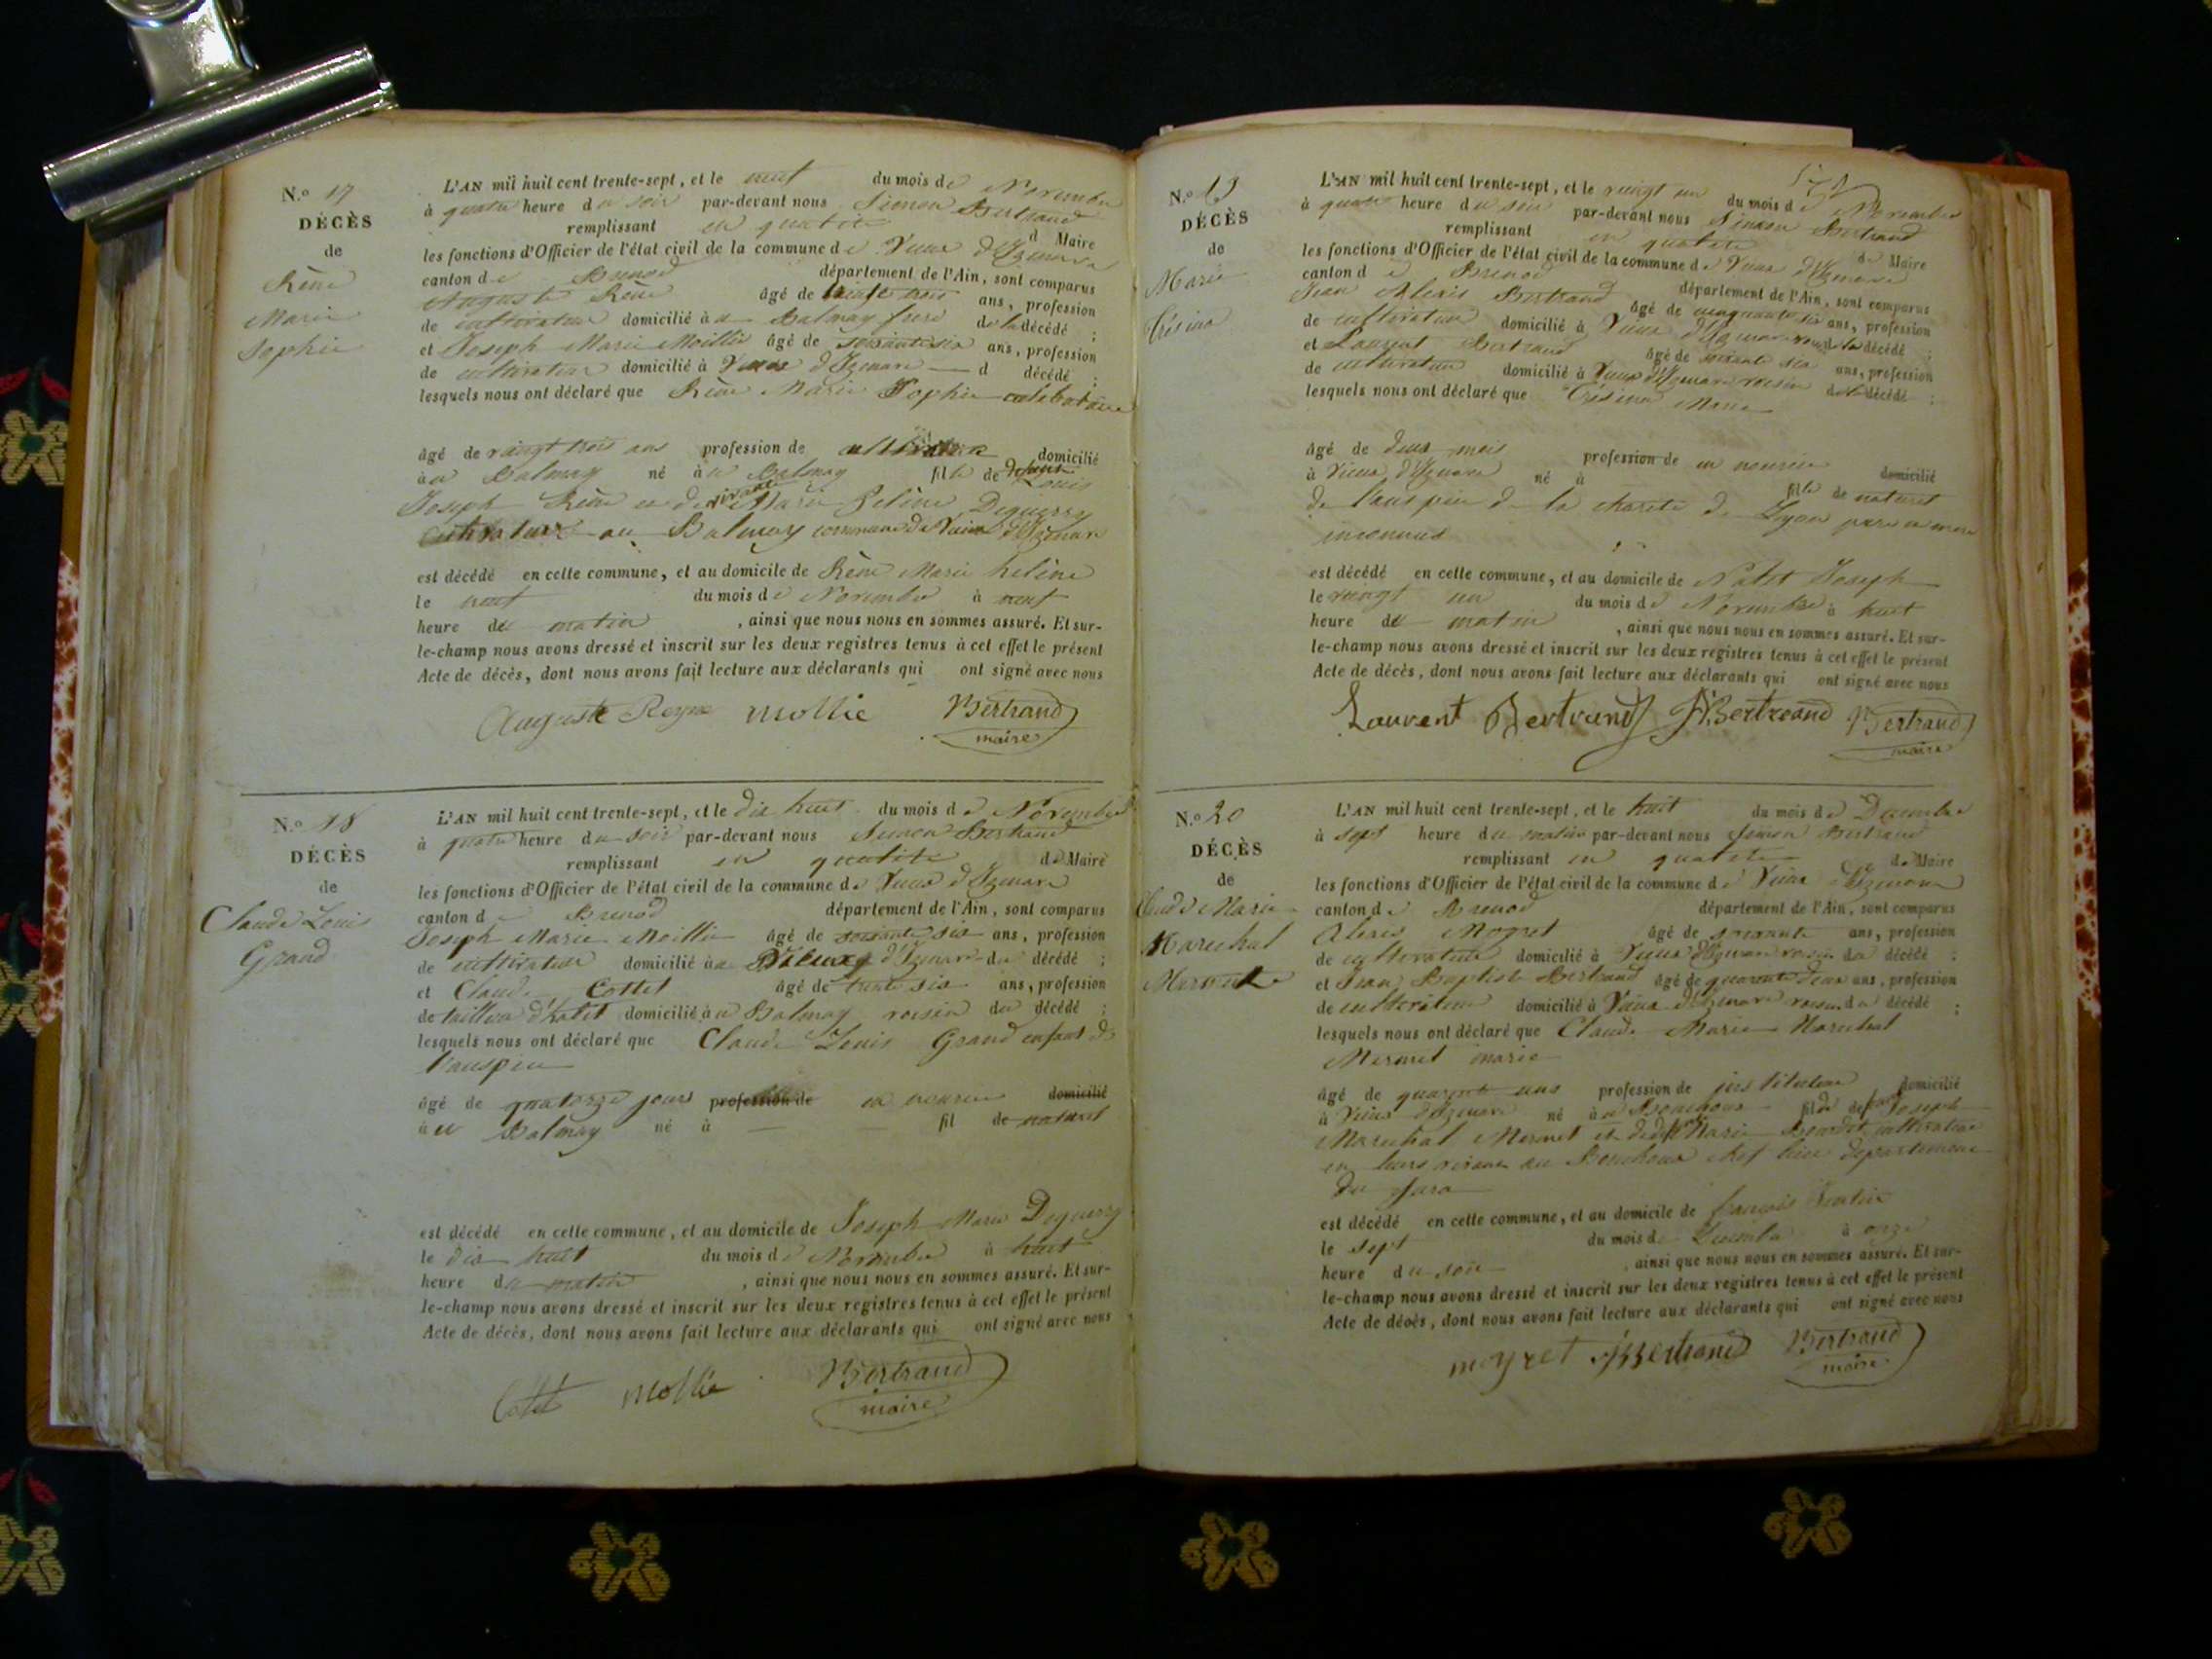 N.o 17
DÉCÈS
de
Rène
Marie
Sophie
L'AN mil huit cent trente-sept, et le neuf du mois de Novembre
à quatre heure du soir par-devant nous Simon Bertrand
remplissant en qualité d Maire
les fonctions d'Officier de l'état civil de la commune de Vieux d'Izenave
canton de Brenod département de l'Ain, sont comparus
Auguste Rène âgé de trente trois ans, profession
de cultivateur domicilié à u Balmay frere de la décédé ;
et Joseph Marie Moillie âgé de soixante six ans, profession
de cultivateur domicilié à Vieux d'Izenave d décédé ;
lesquels nous ont déclaré que Rène Marie Sophie celibataire
âgé de vingt trois ans profession de domicilié
à u Balmay né à u Balmay fille de defunt Louis
Joseph Rène et de vivante Marie Heléne Deguerry
cultivateur au Balmay commune de Vieux d'Izenave
est décédé en cette commune, et au domicile de Rène Marie heléne
le neuf du mois de Novembre à neuf
heure du matin , ainsi que nous nous en sommes assuré. Et sur-
le-champ nous avons dressé et inscrit sur les deux registres tenus à cet effet le présent
Acte de décès, dont nous avons fait lecture aux déclarants qui ont signé avec nous
Auguste Reyne mollie Bertrand
maire
N.o 18
DÉCÈS
de
Claude Louis
Grand
L'AN mil huit cent trente-sept, et le dix huit du mois de Novembre
à quatre heure du soir par-devant nous Simon Bertrand
remplissant en qualité de Maire
les fonctions d'Officier de l'état civil de la commune de Vieux d'Izenave
canton de Brenod département de l'Ain, sont comparus
Joseph Marie Moillie âgé de soixante six ans, profession
de cultivateur domicilié à d'Izenave du décédé ;
et Claude Cottet âgé de trente six ans, profession
de tailleur d'habit domicilié à u Balmay voisin du décédé ;
lesquels nous ont déclaré que Claude Louis Grand enfant de
l'auspice
âgé de quatorze jours profession de en nourice domicilié
à u Balmay né à fil de naturel
est décédé en cette commune, et au domicile de Joseph Marie Deguerry
le dix huit du mois de Novembre à huit
heure du matin , ainsi que nous nous en sommes assuré. Et sur-
le-champ nous avons dressé et inscrit sur les deux registres tenus à cet effet le présent
Acte de décès, dont nous avons fait lecture aux déclarants qui ont signé avec nous
Cottet mollie Bertrand
maire
N.o 19
DÉCÈS
de
Marie
Césina
L'AN mil huit cent trente-sept, et le vingt un du mois de Novembre
à quatre heure du soir par-devant nous Simon Bertrand
remplissant en qualité de Maire
les fonctions d'Officier de l'état civil de la commune de Vieux d'Izenave
canton de Brenod département de l'Ain, sont comparus
Jean Alexis Bertrand âgé de cinquante six ans, profession
de cultivateur domicilié à Vieux d'Izenave voisin de la décédé ;
et Laurent Bertrand âgé de soixante six ans, profession
de cultivateur domicilié à Vieux d'Izenave voisin de la décédé ;
lesquels nous ont déclaré que Césina Marie
âgé de deux mois profession de en nourice domicilié
à Vieux d'Izenave né à fille de naturel
de l'auspice de la charite de Lyon pere et mere
inconnus
est décédé en cette commune, et au domicile de Joseph
le vingt un du mois de Novembre à huit
heure du matin , ainsi que nous nous en sommes assuré. Et sur-
le-champ nous avons dressé et inscrit sur les deux registres tenus à cet effet le présent
Acte de décès, dont nous avons fait lecture aux déclarants qui ont signé avec nous
Laurent Bertrand JA Bertreand Bertrand
maire
N.o 20
DÉCÈS
de
Claude Marie
Marechal
Mermet
L'AN mil huit cent trente-sept, et le huit du mois de Decembre
à sept heure du matin par-devant nous Simon Bertrand
remplissant en qualité de Maire
les fonctions d'Officier de l'état civil de la commune de Vieux d'Izenave
canton de Brenod département de l'Ain, sont comparus
Alexis Mogret âgé de soixante ans, profession
de cultivateur domicilié à Vieux d'Izenave voisin du décédé ;
et Jean Baptiste Bertrand âgé de quarente deux ans, profession
de cultivateur domicilié à Vieux d'Izenave voisin du décédé ;
lesquels nous ont déclaré que Claude Marie Marechal
Mermet marie
âgé de quarente ans profession de instituteur domicilié
à Vieux d'Izenave né à u Bouchoux fils de Joseph
Marechal Mermet et de Marie cultivateur
en leurs vivant au Bouchoux chef lieu departement
du Jura
est décédé en cette commune, et au domicile de françois
le sept du mois de Decembre à onze
heure du soir , ainsi que nous nous en sommes assuré. Et sur-
le-champ nous avons dressé et inscrit sur les deux registres tenus à cet effet le présent
Acte de décès, dont nous avons fait lecture aux déclarants qui ont signé avec nous
moyret JB Bertrand Bertrand
maire